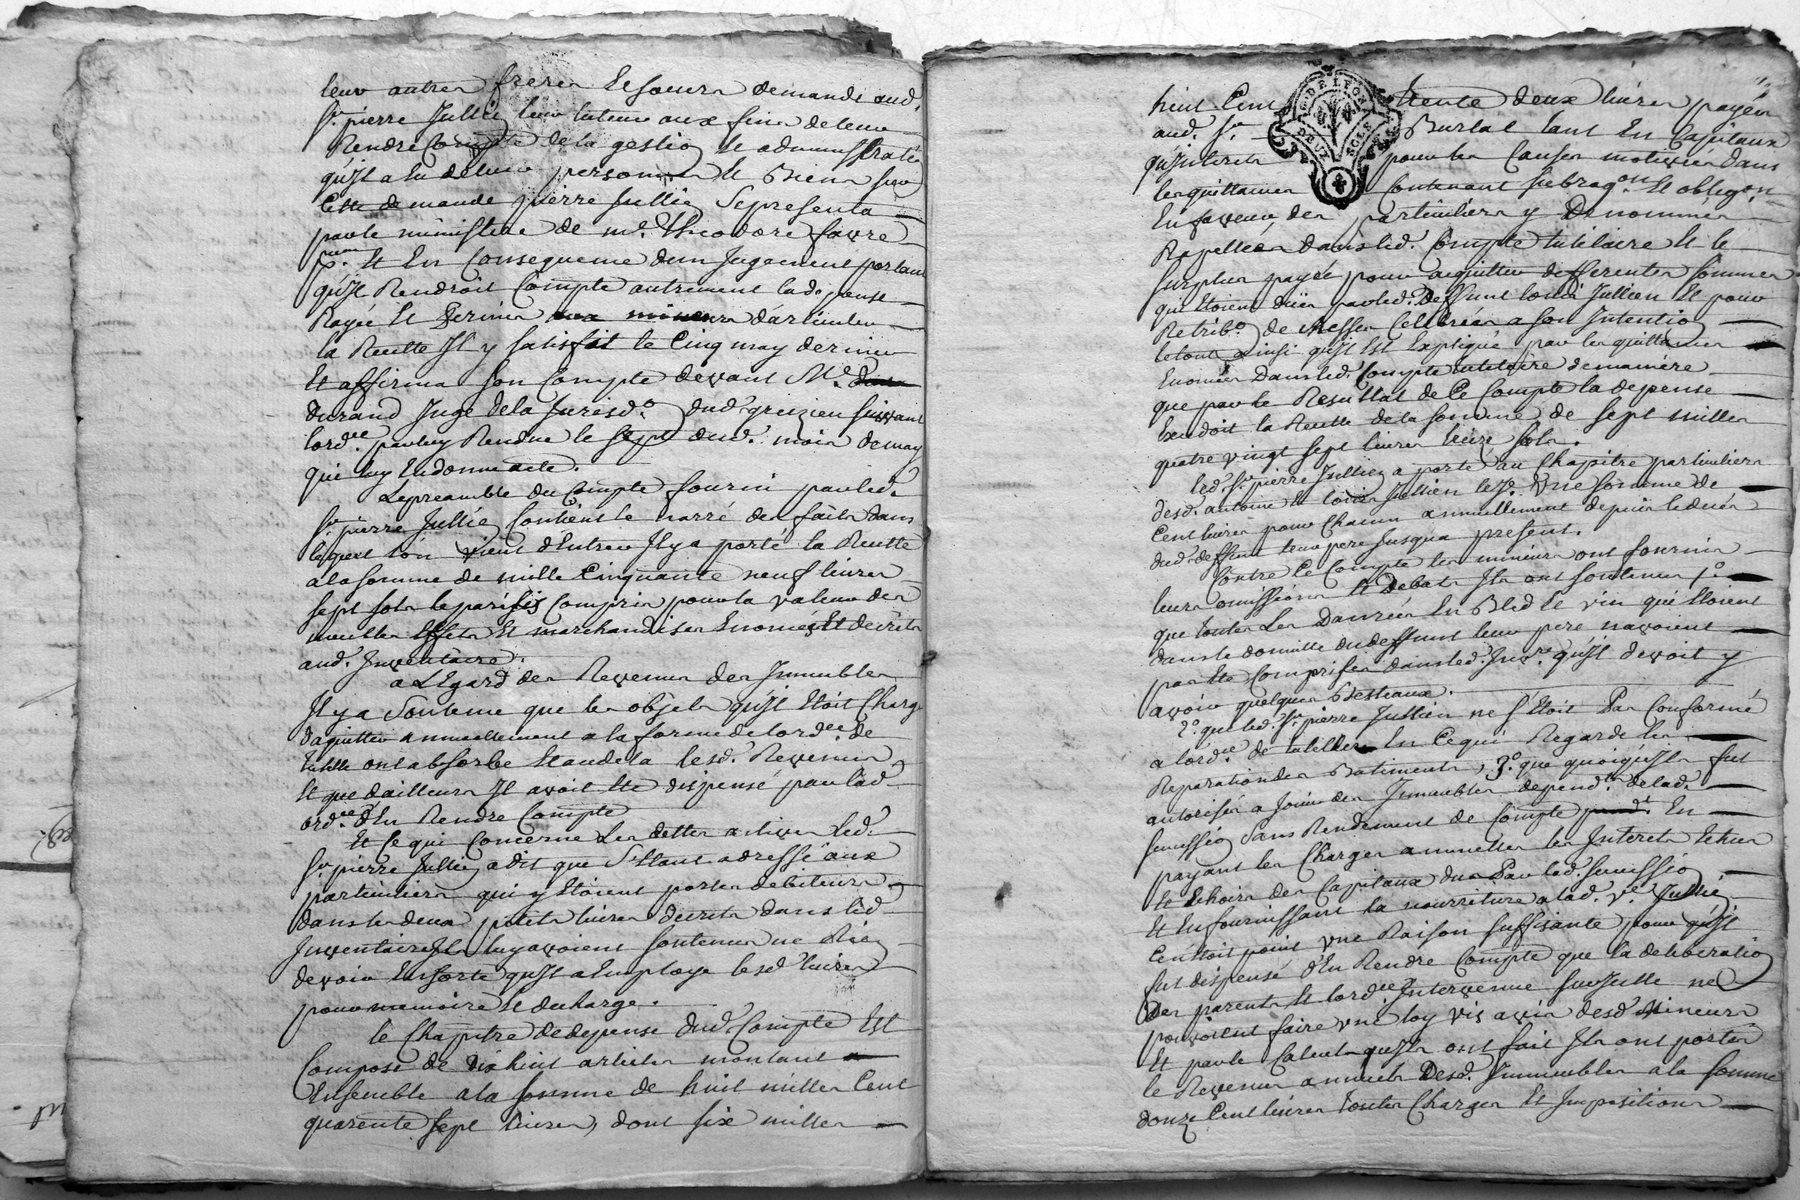 leur autres freres et soeurs demande aud.
Sr. pierre Jullien leur tuteur aux fins de leur
Rendre Compte de la gestion et administration
qu'jl a Eu de leurs personnes et Biens sur
Cette demande pierre Jullien se presenta
par le ministere de me. Theodore favre
pr. Et En Consequence d'un Jugement portant
qu'jl Rendroit Compte autrement la depense
Rayée Et
la Recette Jl y satisfit le Cinq may dernier
Et affirma son Compte devant Me.
Durand Juge de la Jurisd.on dud. grezieu suivant
lord.ce par luy Rendue le sept dud. mois de may
qui luy En donne acte.
Le preambule du Compte fourni par led.
Sr. pierre Jullien Contient le narré des faits dans
lequel l'on vient d'Entrer Jl y a porté la Recette
a la somme de mille Cinquante neuf livres
sept sols le parisis Compris pour la valeur des
meubles Effets Et marchandises Enoncés Et decrits
aud. Inventaire.
a L'Egard des Revenus des Jmmeubles
Jl y a soutenu que les objets qu'jl Etoit Chargé
d'aquitter annuellement a la forme de lord.ce de
tutelle ont absorbé Et audela lesd. Revenus
Et que d'ailleurs Jl avoit Eté dispensé par lad.
ord.ce d'En Rendre Compte
Et Ce qui Concerne Les dettes actives led.
Sr. pierre Jullien a dit que s'Etant adressé aux
particuliers qui y Etoient portés debiteurs
dans les deux petits livres decrits dans led.
Jnventaire Jls luy avoient soutenu ne Rien
devoir En sorte qu'jl a Employé lesd. livres
pour memoire Et decharge.
le Chapitre de depense dud. Compte Est
Composé de dix huit articles montant
Ensemble a la somme de huit milles Cent
quarente sept livres, dont six milles
G. DE LYON
DEUX SOLS
huit Cent trente deux livres payés
aud. Sr. Burlat tant En Capitaux
qu'jnterets pour les Causes motivées dans
les quittances Contenant subrog.on Et oblig.on
En faveur des particuliers y Denommés
Rapellées dans led. Compte tutelaire Et le
surplus payée pour aquitter differentes sommes
qui Etoient dues par led. Deffunt Jullien Et pour
Retrib.on de Messes Celebrées a son Intention
le tout ainsi qu'jl Est Expliqué par les quittances
Enoncées Dans led. Compte tutelaire de maniere
que par le Resultat de Ce Compte la depense
Excedoit la Recette de la somme de sept milles
quatre vingt sept livres treize sols.
led. Sr. pierre Jullien a porté au Chapitre particulier
desd. antoine Et Jullien une somme de
Cent livres pour Chacun annuellement depuis le deces
dud. deffunt leur pere Jusqua present.
Contre Ce Compte les mineurs ont fournis
leurs omissions Et Debats Jls ont soutenus 1.o
que toutes Les Danrées En Bled Et vin qui Etoient
dans le domicile du deffunt leur pere n'avoient
pas Eté Comprises dans led. Jnv.re qu'jl devoit y
avoir quelques Bestiaux.
2.o que led. Sr. pierre Jullien ne s'Etoit Pas Conformé
a lord.ce de tutelle En Cequi Regarde les
Reparations des Batiments, 3.o que quoiqu'jl fut
autorisé a Jouir des Jmmeubles depend.ts de lad.
succession sans Rendement de Compte En
payant les Charges annuelles les Interets Echus
Et Echoirs des Capitaux dus Par led. succession
Et En fournissant la nourriture a lad. v.e Jullien
C'en Etoit point une Raison suffisante pour qu'jl
fut dispensé d'En Rendre Compte que la deliberation
Des parents Et lord.ce Intervenue sur Icelle ne
pouvoient faire une loy vis avis desd. Mineurs
Et par le Calcul qu'jls ont fait Jls ont portés
le Revenu annuel Desd. Jmmeubles a la somme
douze Cent livres toutes Charges Et Jmpositions